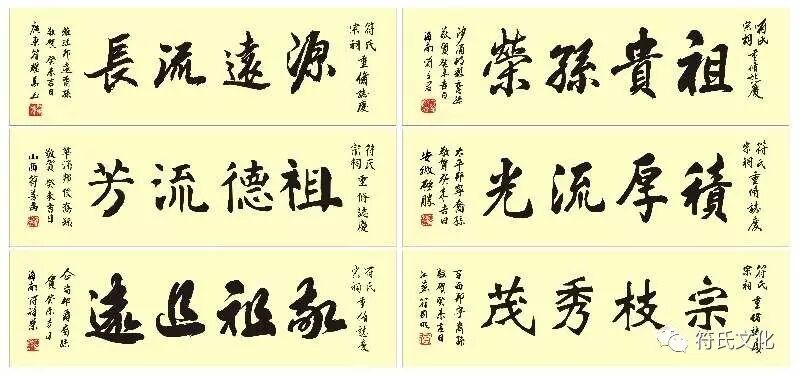 符氏
宗祠 重修誌慶
源遠流長
敬賀 癸未吉日
廣東符
符氏
宗祠 重修誌慶
祖貴孫榮
敬賀 癸未吉日
海南符
符氏
宗祠 重修誌慶
祖德流芳
敬賀 癸未吉日
山西符善
符氏
宗祠 重修誌慶
積厚流光
太平邨寧裔孫
敬賀癸未吉日
安徽
符氏
宗祠 重修誌慶
敬祖追遠
賀 癸未吉日
海南符
符氏
宗祠 重修誌慶
宗枝秀茂
百西邨寧裔孫
敬賀癸未吉日
符氏文化